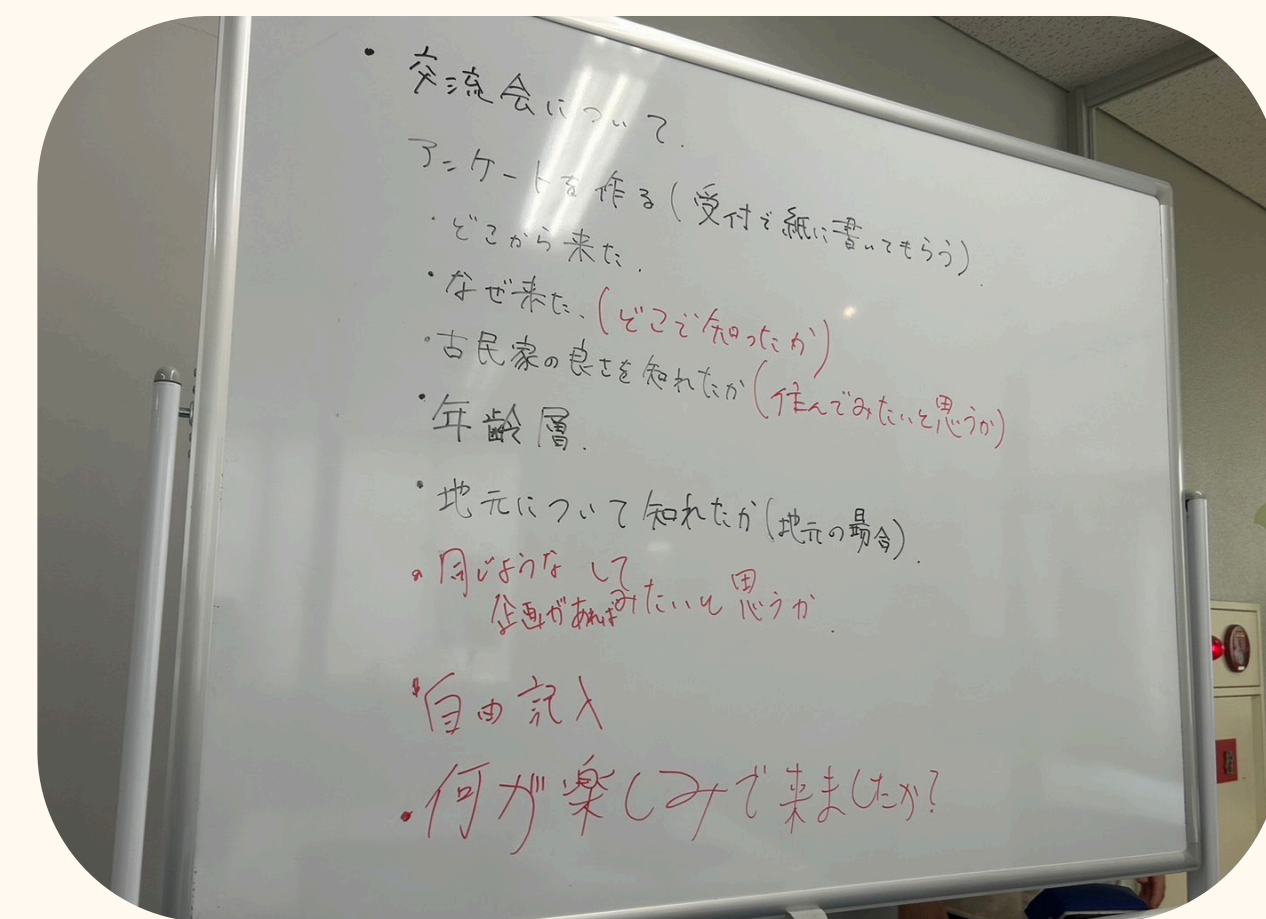 ・交流会について.
アンケートを作る(受付で紙に書いてもらう)
・どこから来た.
・なぜ来た、(どこで知ったか)
・古民家の良さを知れたか(住んでみたいと思うか)
・年齢層.
・地元について知れたか(地元の場合).
・同じような して
企画があればみたいと思うか.
・自由記入
・何が楽しみで来ましたか?